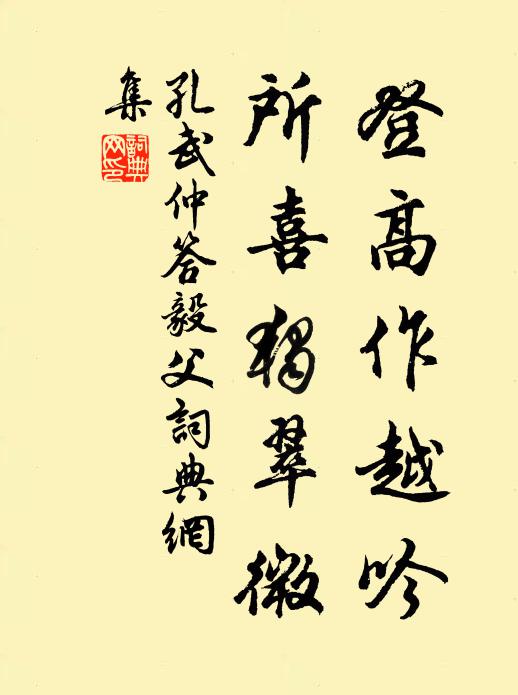 登高作越吟
所喜獨翠微
孔武仲答毅父詞典網
集
詞典網印